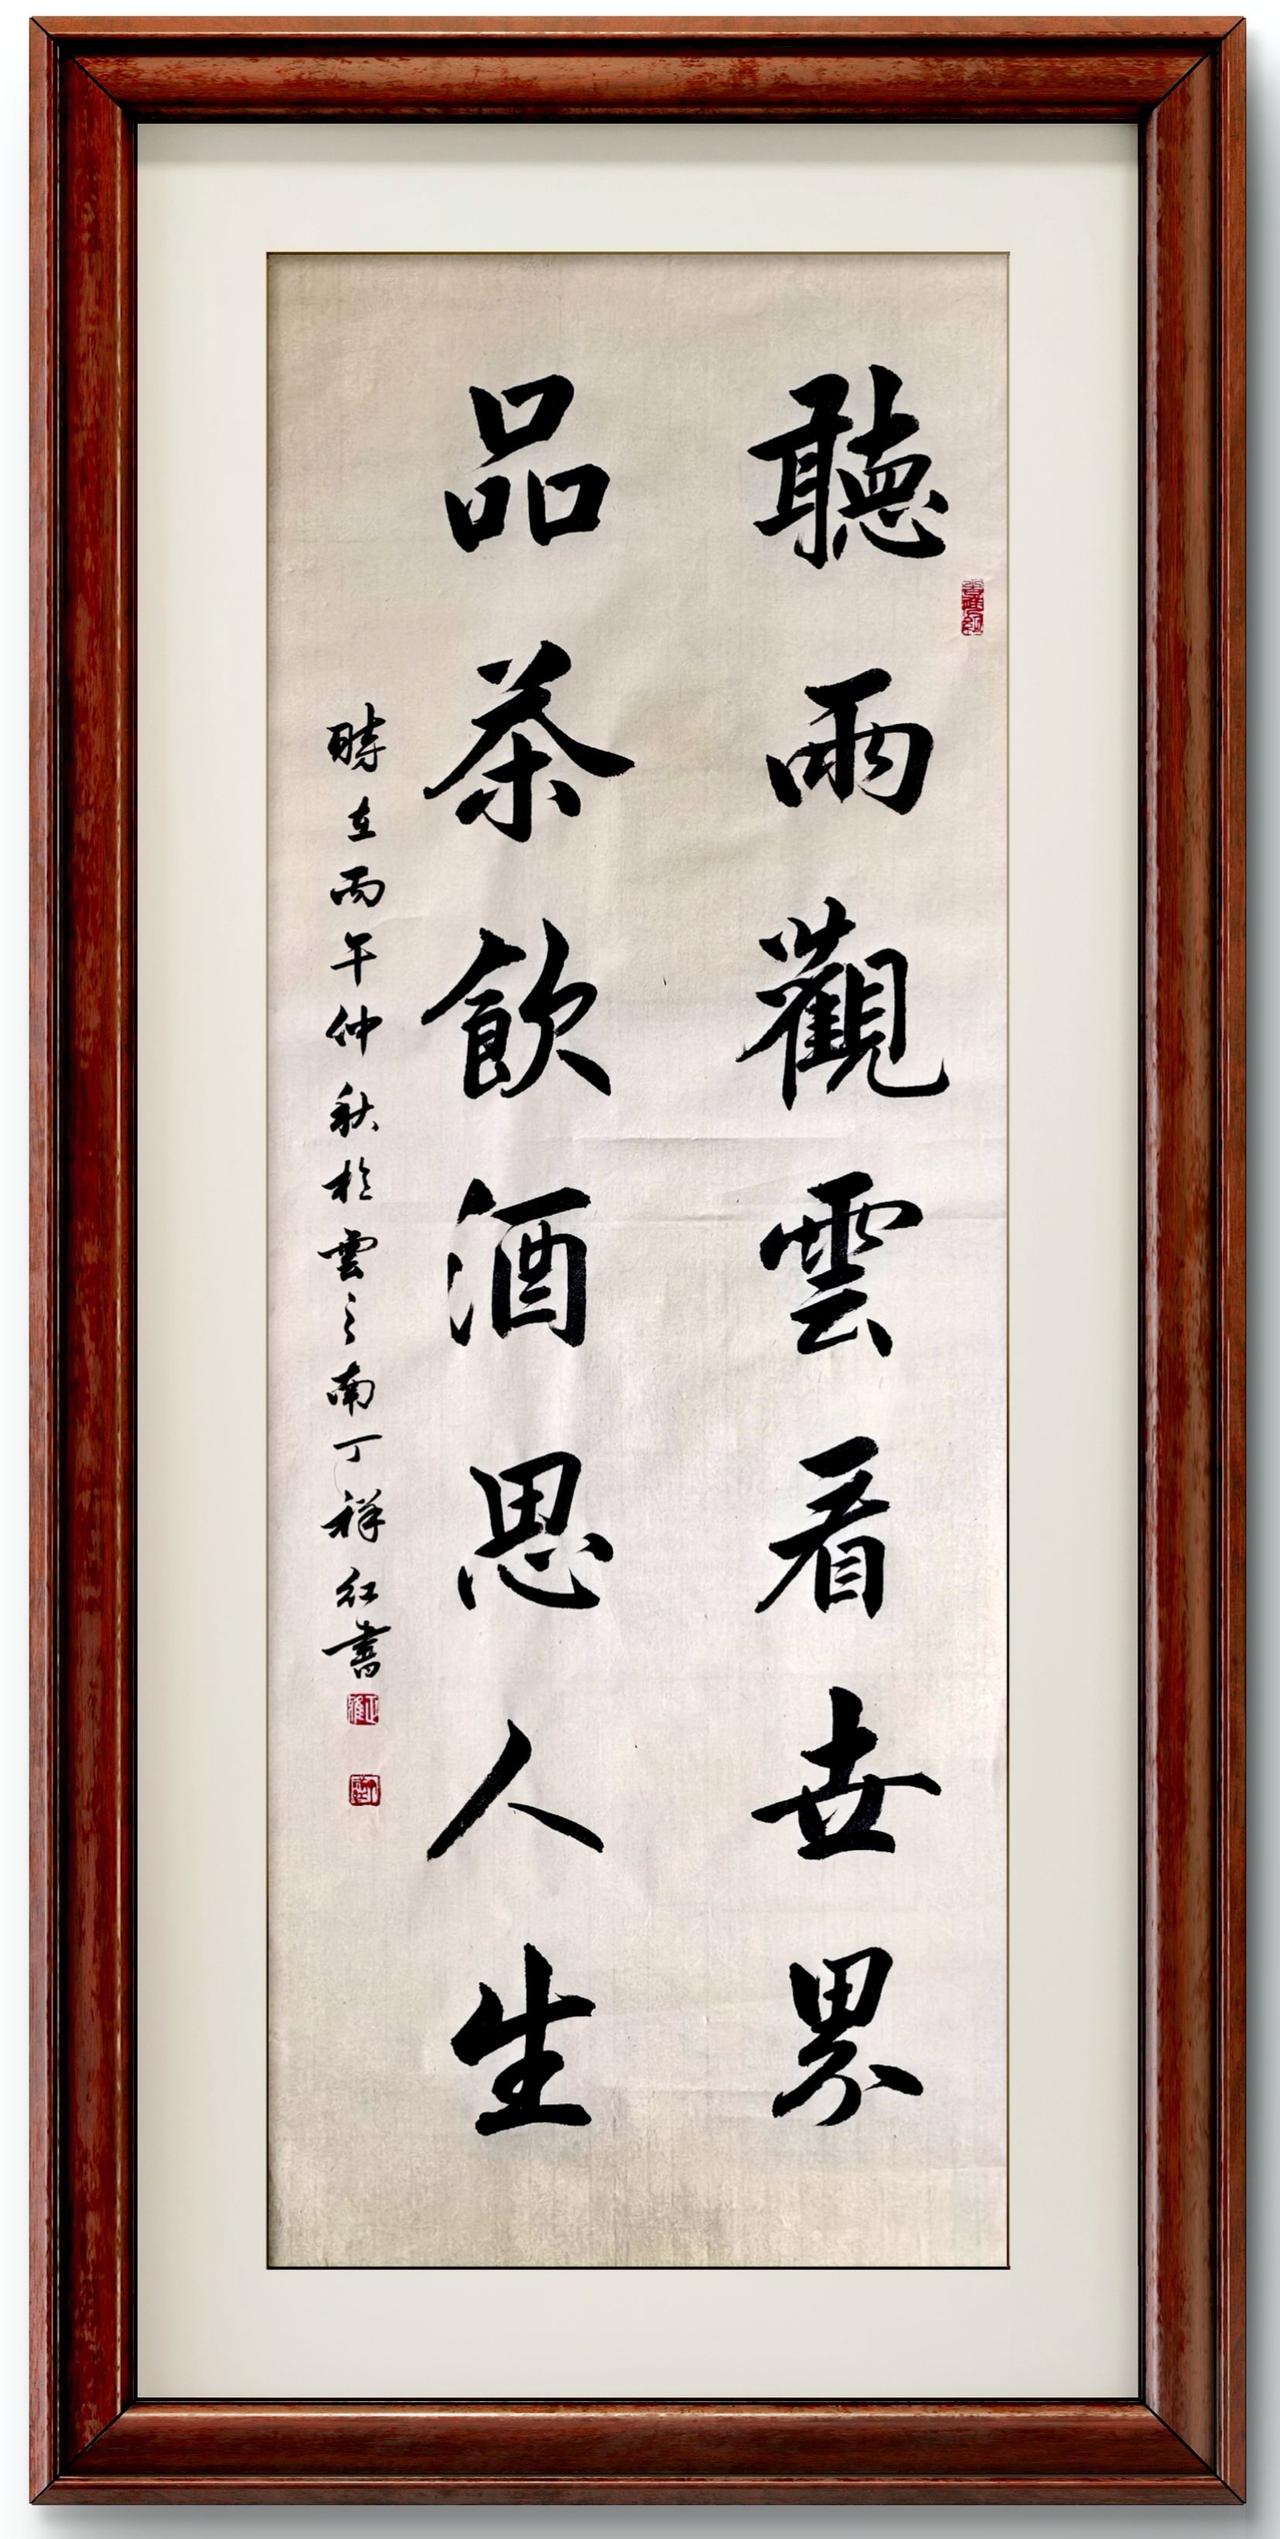 聽雨觀雲看世界
品茶飲酒思人生
時在丙午仲秋於雲之南丁祥紅書